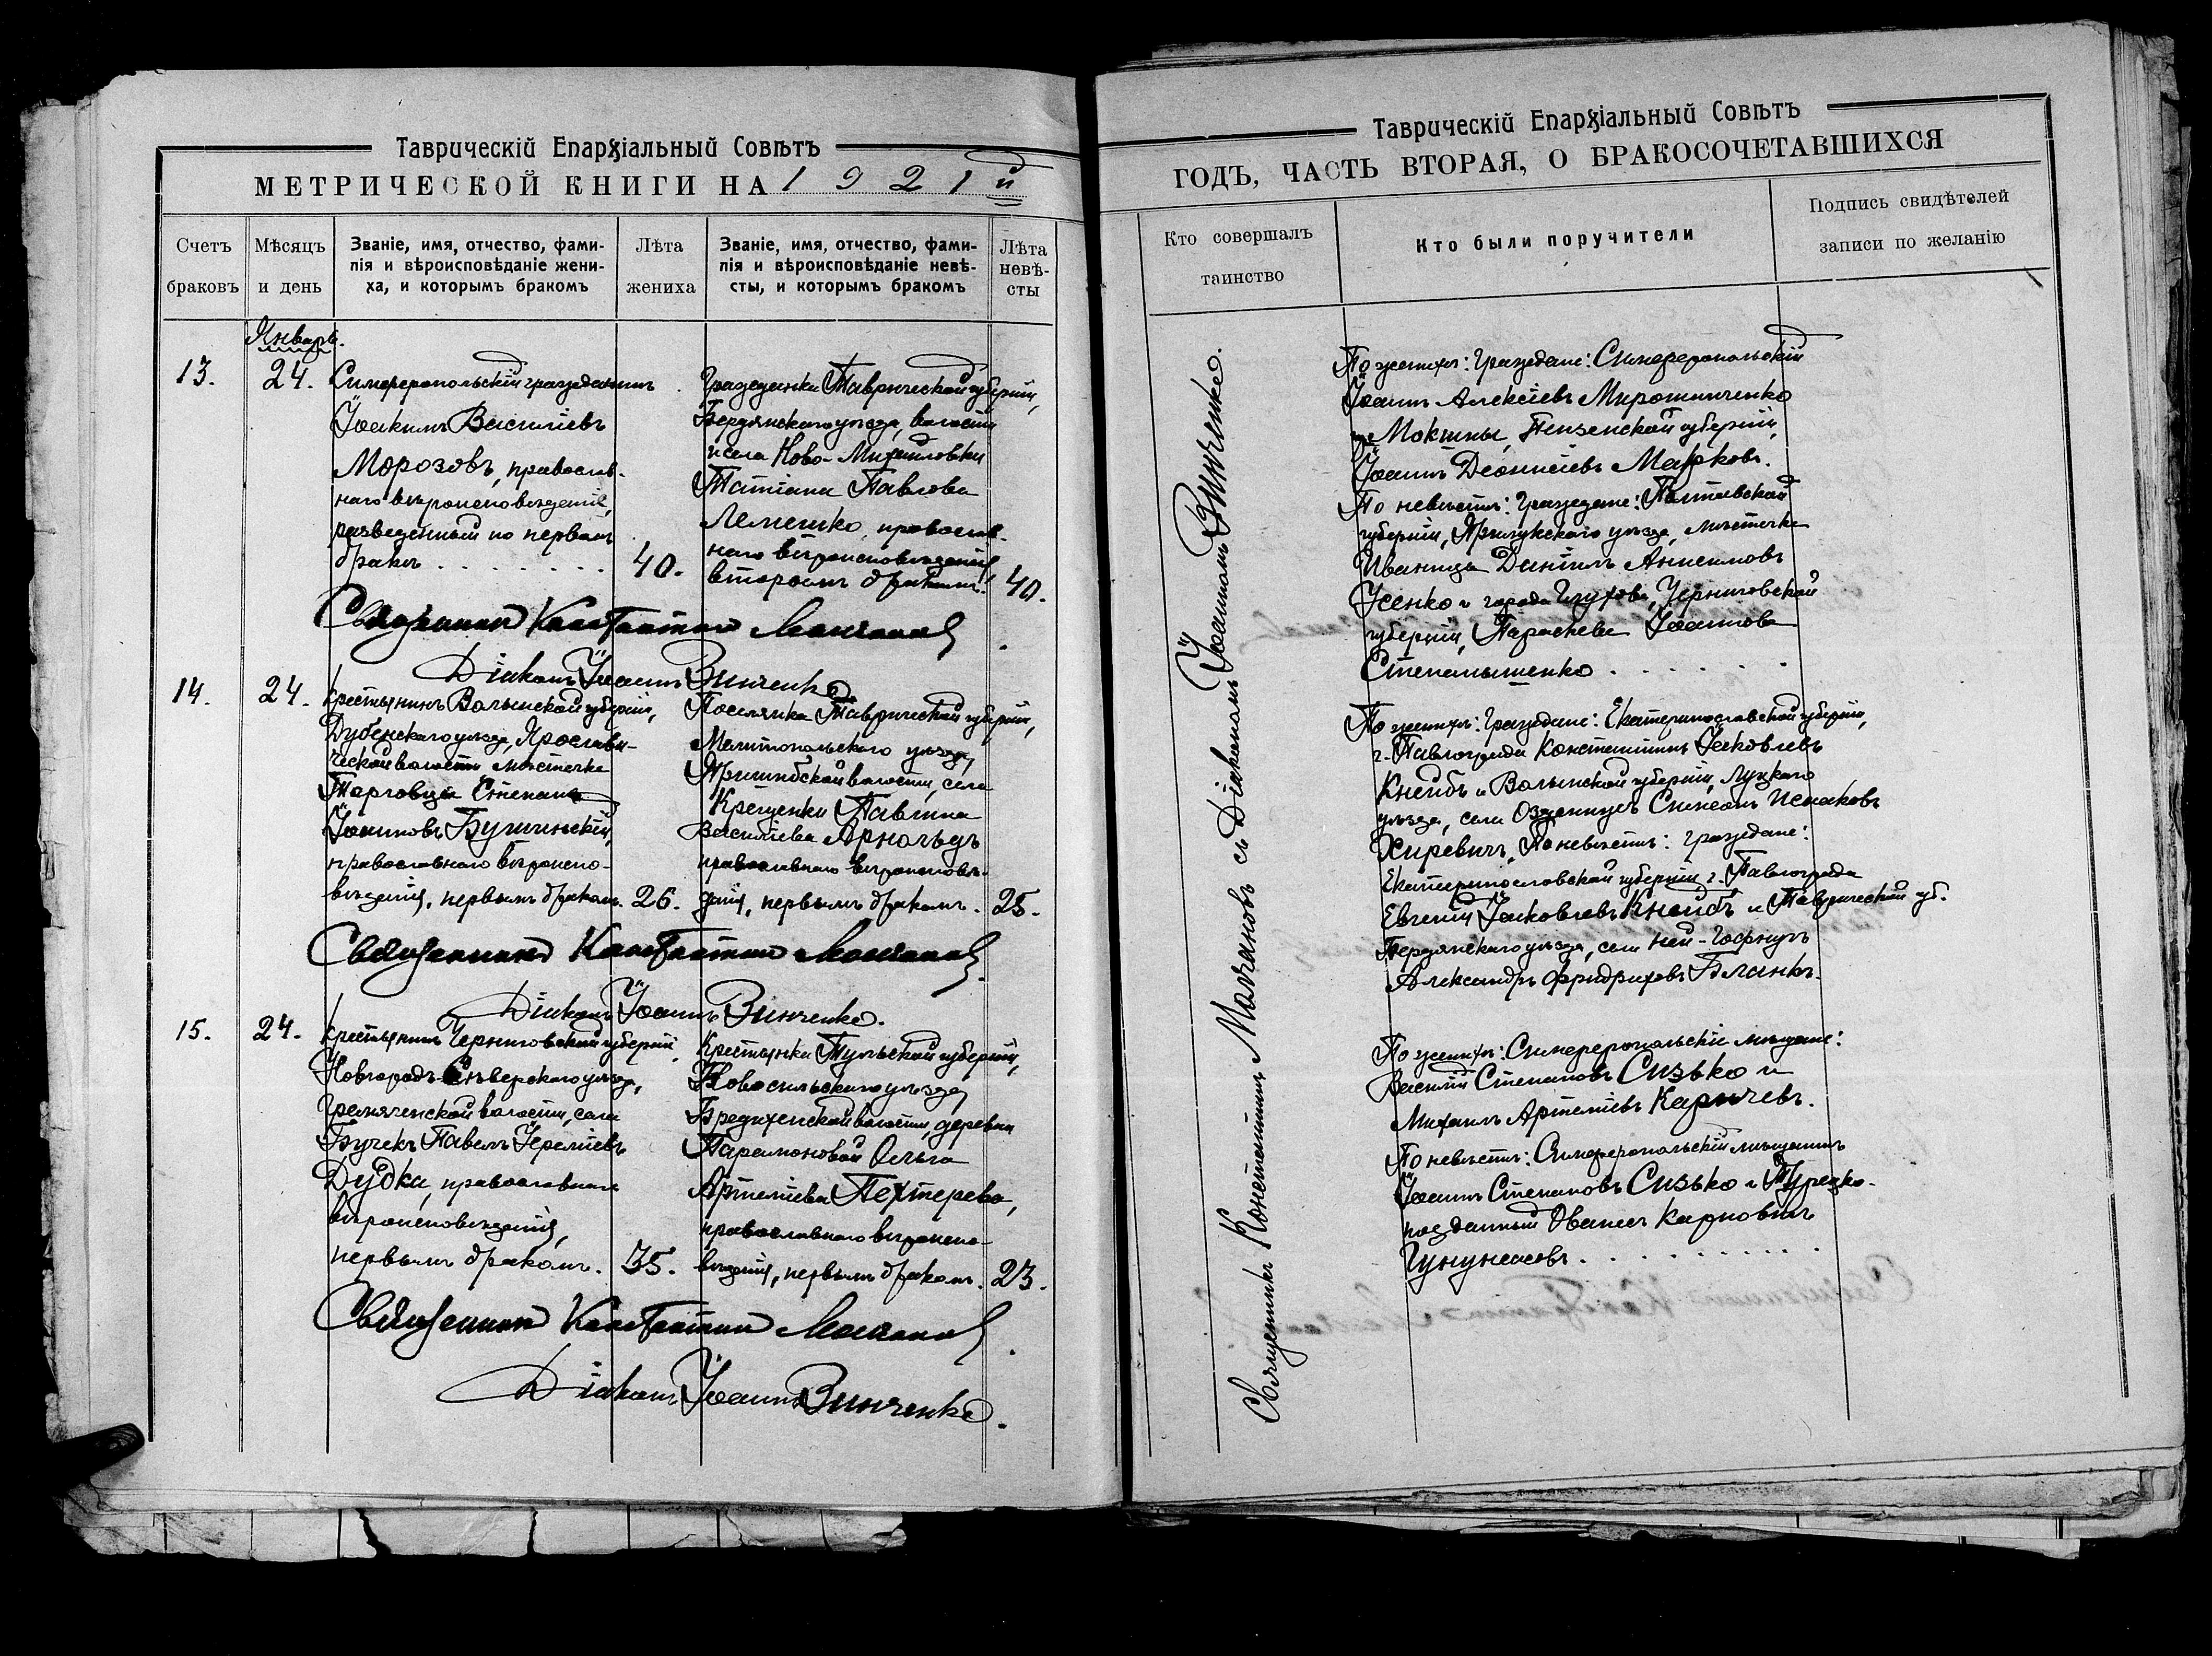 Таврическій Епархіальный Совѣтъ
МЕТРИЧЕСКОЙ КНИГИ НА 1921й
Счетъ браковъ
Мѣсяцъ и день
Званіе, имя, отчество, фами-
лія и вѣроисповѣданіе жени-
ха, и которымъ бракомъ
Лѣта жениха
Званіе, имя, отчество, фами-
лія и вѣроисповѣданіе невѣ-
сты, и которымъ бракомъ
Лѣта
невѣ-
сты
Январь.
13.
24.
Симферопольскій гражданинъ
Іоакимъ Василіевъ
Морозовъ, православ-
наго вѣроисповѣданія,
разведенный по первомъ
бракѣ . . . . . . . .
40.
Гражданка Таврической губерніи,
Бердянскаго уѣзда, волости
и села Ново-Михайловки
Татіана Павлова
Лемешко, православ-
наго вѣроисповѣданія,
вторымъ бракомъ.
40.
Священникъ Константинъ Молчановъ.
Діаконъ Іоаннъ Винченко
14.
24.
Крестьянинъ Волынской губерніи,
Дубенскаго уѣзда, Ярослави-
ческой волости мѣстечка
Торговица Стефанъ
Іоанновъ Бушинскій,
православнаго вѣроиспо-
вѣданія, первымъ бракомъ.
26.
Поселянка Таврической губерніи,
Мелитопольскаго уѣзда,
Пришибской волости, села
Крещенки Павлина
Василіева Арнольдъ
православнаго вѣроисповѣ-
данія, первымъ бракомъ.
25.
Священникъ Константинъ Молчановъ.
Діаконъ Іоаннъ Винченко.
15.
24.
Крестьянинъ Черниговской губерніи,
Новгородъ-Сѣверскаго уѣзда,
Гремячской волости, села
Бучекъ Павелъ Іереміевъ
Дудка, православнаго
вѣроисповѣданія,
первымъ бракомъ.
35.
Крестьянка Тульской губерніи,
Новосильскаго уѣзда,
Бредихенской волости, деревни
Парамоновой Ольга
Артеміева Пехтерева,
православнаго вѣроиспо-
вѣданія, первымъ бракомъ.
23.
Священникъ Константинъ Молчановъ.
Діаконъ Іоаннъ Винченко.
Таврическій Епархіальный Совѣтъ
ГОДЪ, ЧАСТЬ ВТОРАЯ, О БРАКОСОЧЕТАВШИХСЯ
Кто совершалъ
таинство
Кто были поручители
Подпись свидѣтелей
записи по желанію
Священникъ Константинъ Молчановъ съ Діакономъ Іоанномъ Винченко.
По женихѣ: Граждане: Симферопольскій
Іоаннъ Алексіевъ Мирошниченко
Мокшны, Пензенской губерніи,
Іоаннъ Діонисіевъ Марковъ.
По невѣстѣ: Граждане: Полтавской
губерніи, Прилукскаго уѣзда, мѣстечка
Иваница Даніилъ Анисимовъ
Усенко и города Глухова, Черниговской
губерніи, Параскева Іоаннова
Степанышенко . . . . . .
По женихѣ: Граждане: Екатеринославской губерніи,
г. Павлограда Константинъ Іаковлевъ
Кнейбъ и Волынской губерніи, Луцкаго
уѣзда, села Озденижъ Симеонъ Исааковъ
Хиревичъ, По невѣстѣ: граждане:
Екатеринославской губерніи г. Павлограда
Евгеній Іаковлевъ Кнейбъ и Таврической губ.
Бердянскаго уѣзда, села Ней-Гофнунгъ
Александръ Фридриховъ Бланкъ.
По женихѣ: Симферопольскіе мѣщане:
Василій Стефановъ Сизько и
Михаилъ Артеміевъ Каричевъ.
По невѣстѣ: Симферопольскій мѣщанинъ
Іоаннъ Стефановъ Сизько и Турецко-
подданный Ованесъ Карповичъ
Гунунжасовъ . . . . . . . . .